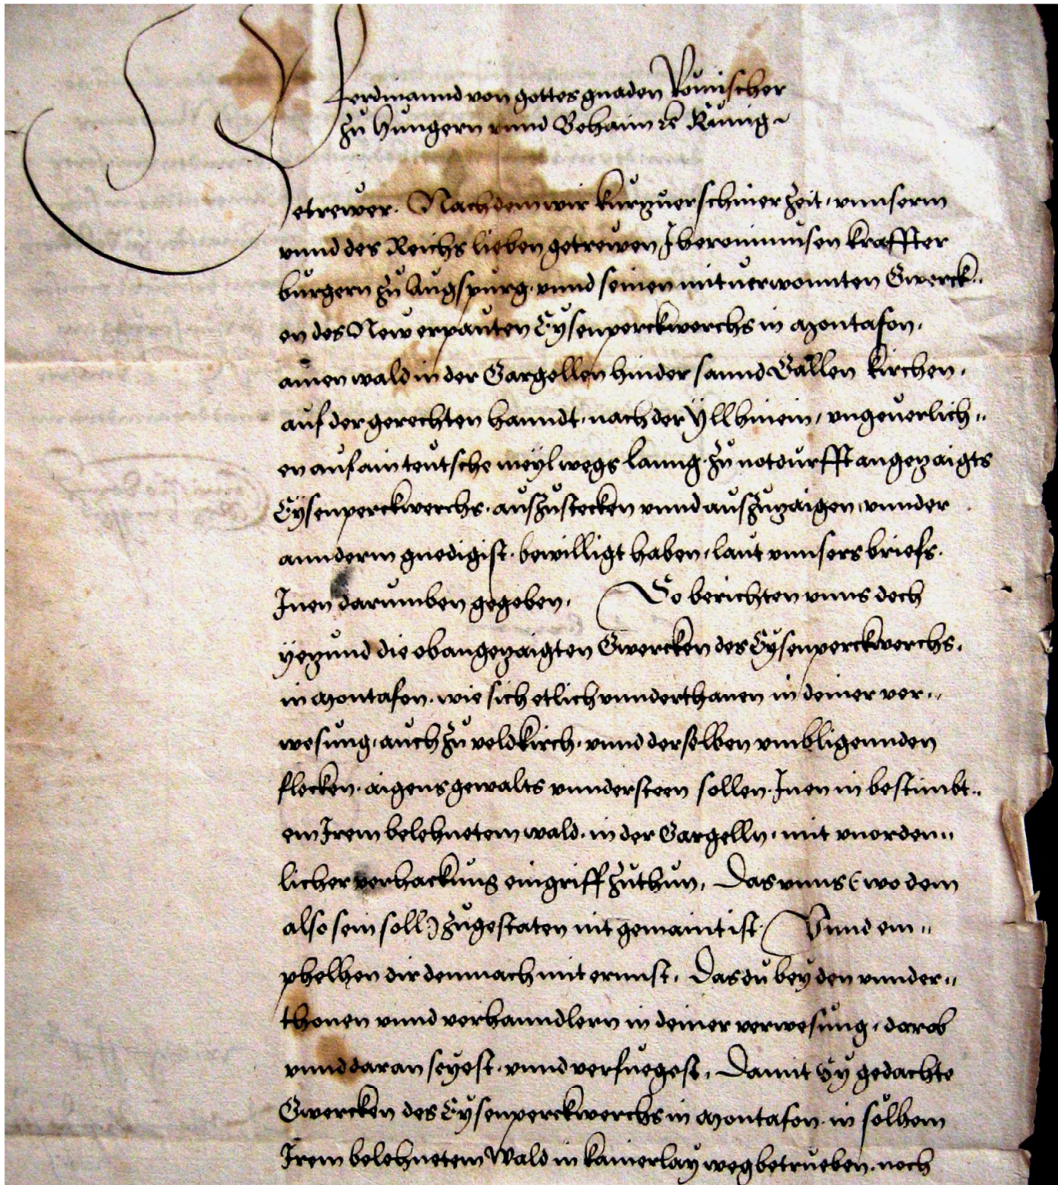 Ferdinannd von gottes gnaden Römischer
Zu Hungern vnnd Behaim &c Kunig
Getrewer. Nachdem wir kurtzuerschiner Zeit, vnnserm
vnnd des Reichs lieben getrewen Iheronimusen Kraffter
burgern zu Augspurg vnnd seinen mituerwonnten Gwerck..
en des New erpauten Eysenperckwerchs in Montafon,
ainen wald in der Gargellen hinder sannd Gallen kirchen,
auf der gerechten hanndt, nach der Yll hinein, vngeuerlich..
en auf ain teutsche meyl wegs lanng zu notdurfft angezaigts
Eysenperckwerchs, auszustecken vnnd auszuzaigen, vnnder
annderm gnedigist bewilligt haben, laut vnnsers briefs.
Inen darumben gegeben. So berichten vnns doch
yetzund die obangezaigten Gwercken des Eysenperckwerchs,
in Montafon, wie sich etlich vnnderthanen in deiner ver..
wesung, auch zu veldkirch, vnnd derselben vmbligennden
flecken, aigens gewalts vnndersteen sollen, Inen in bestimbt..
em Irem belehnetem wald, in der Gargelln, mit vnorden..
licher verhackung eingriff zuthun, Das vnns (wo dem
also sein soll) zugestaten nit gemaint ist. Vnnd em..
phelhen dir demnach mit ernnst, Das du bey den vnnder..
thonen vnnd verhanndlern in deiner verwesung, darob
vnnd daran seyest, vnnd verfuegest, Damit Sy gedachte
Gwercken des Eysenperckwerchs in Montafon, in solhem
Irem belehnetem Wald in kainerlay weg betrueben, noch